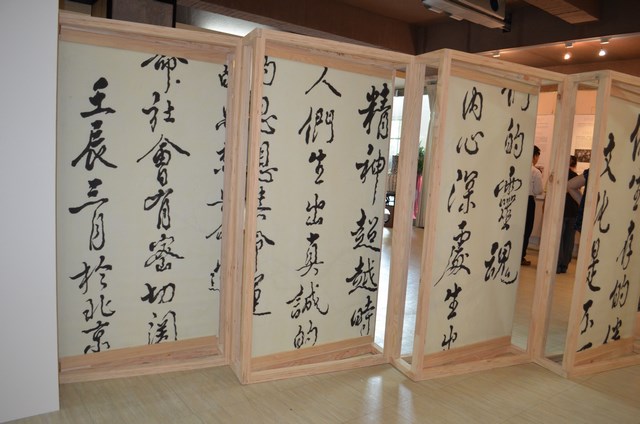 生存的
文化是不
們的靈魂
內心深處生出
精神超越時
人們生出真誠的
的思想與命運
社會有密切關
壬辰三月於北京